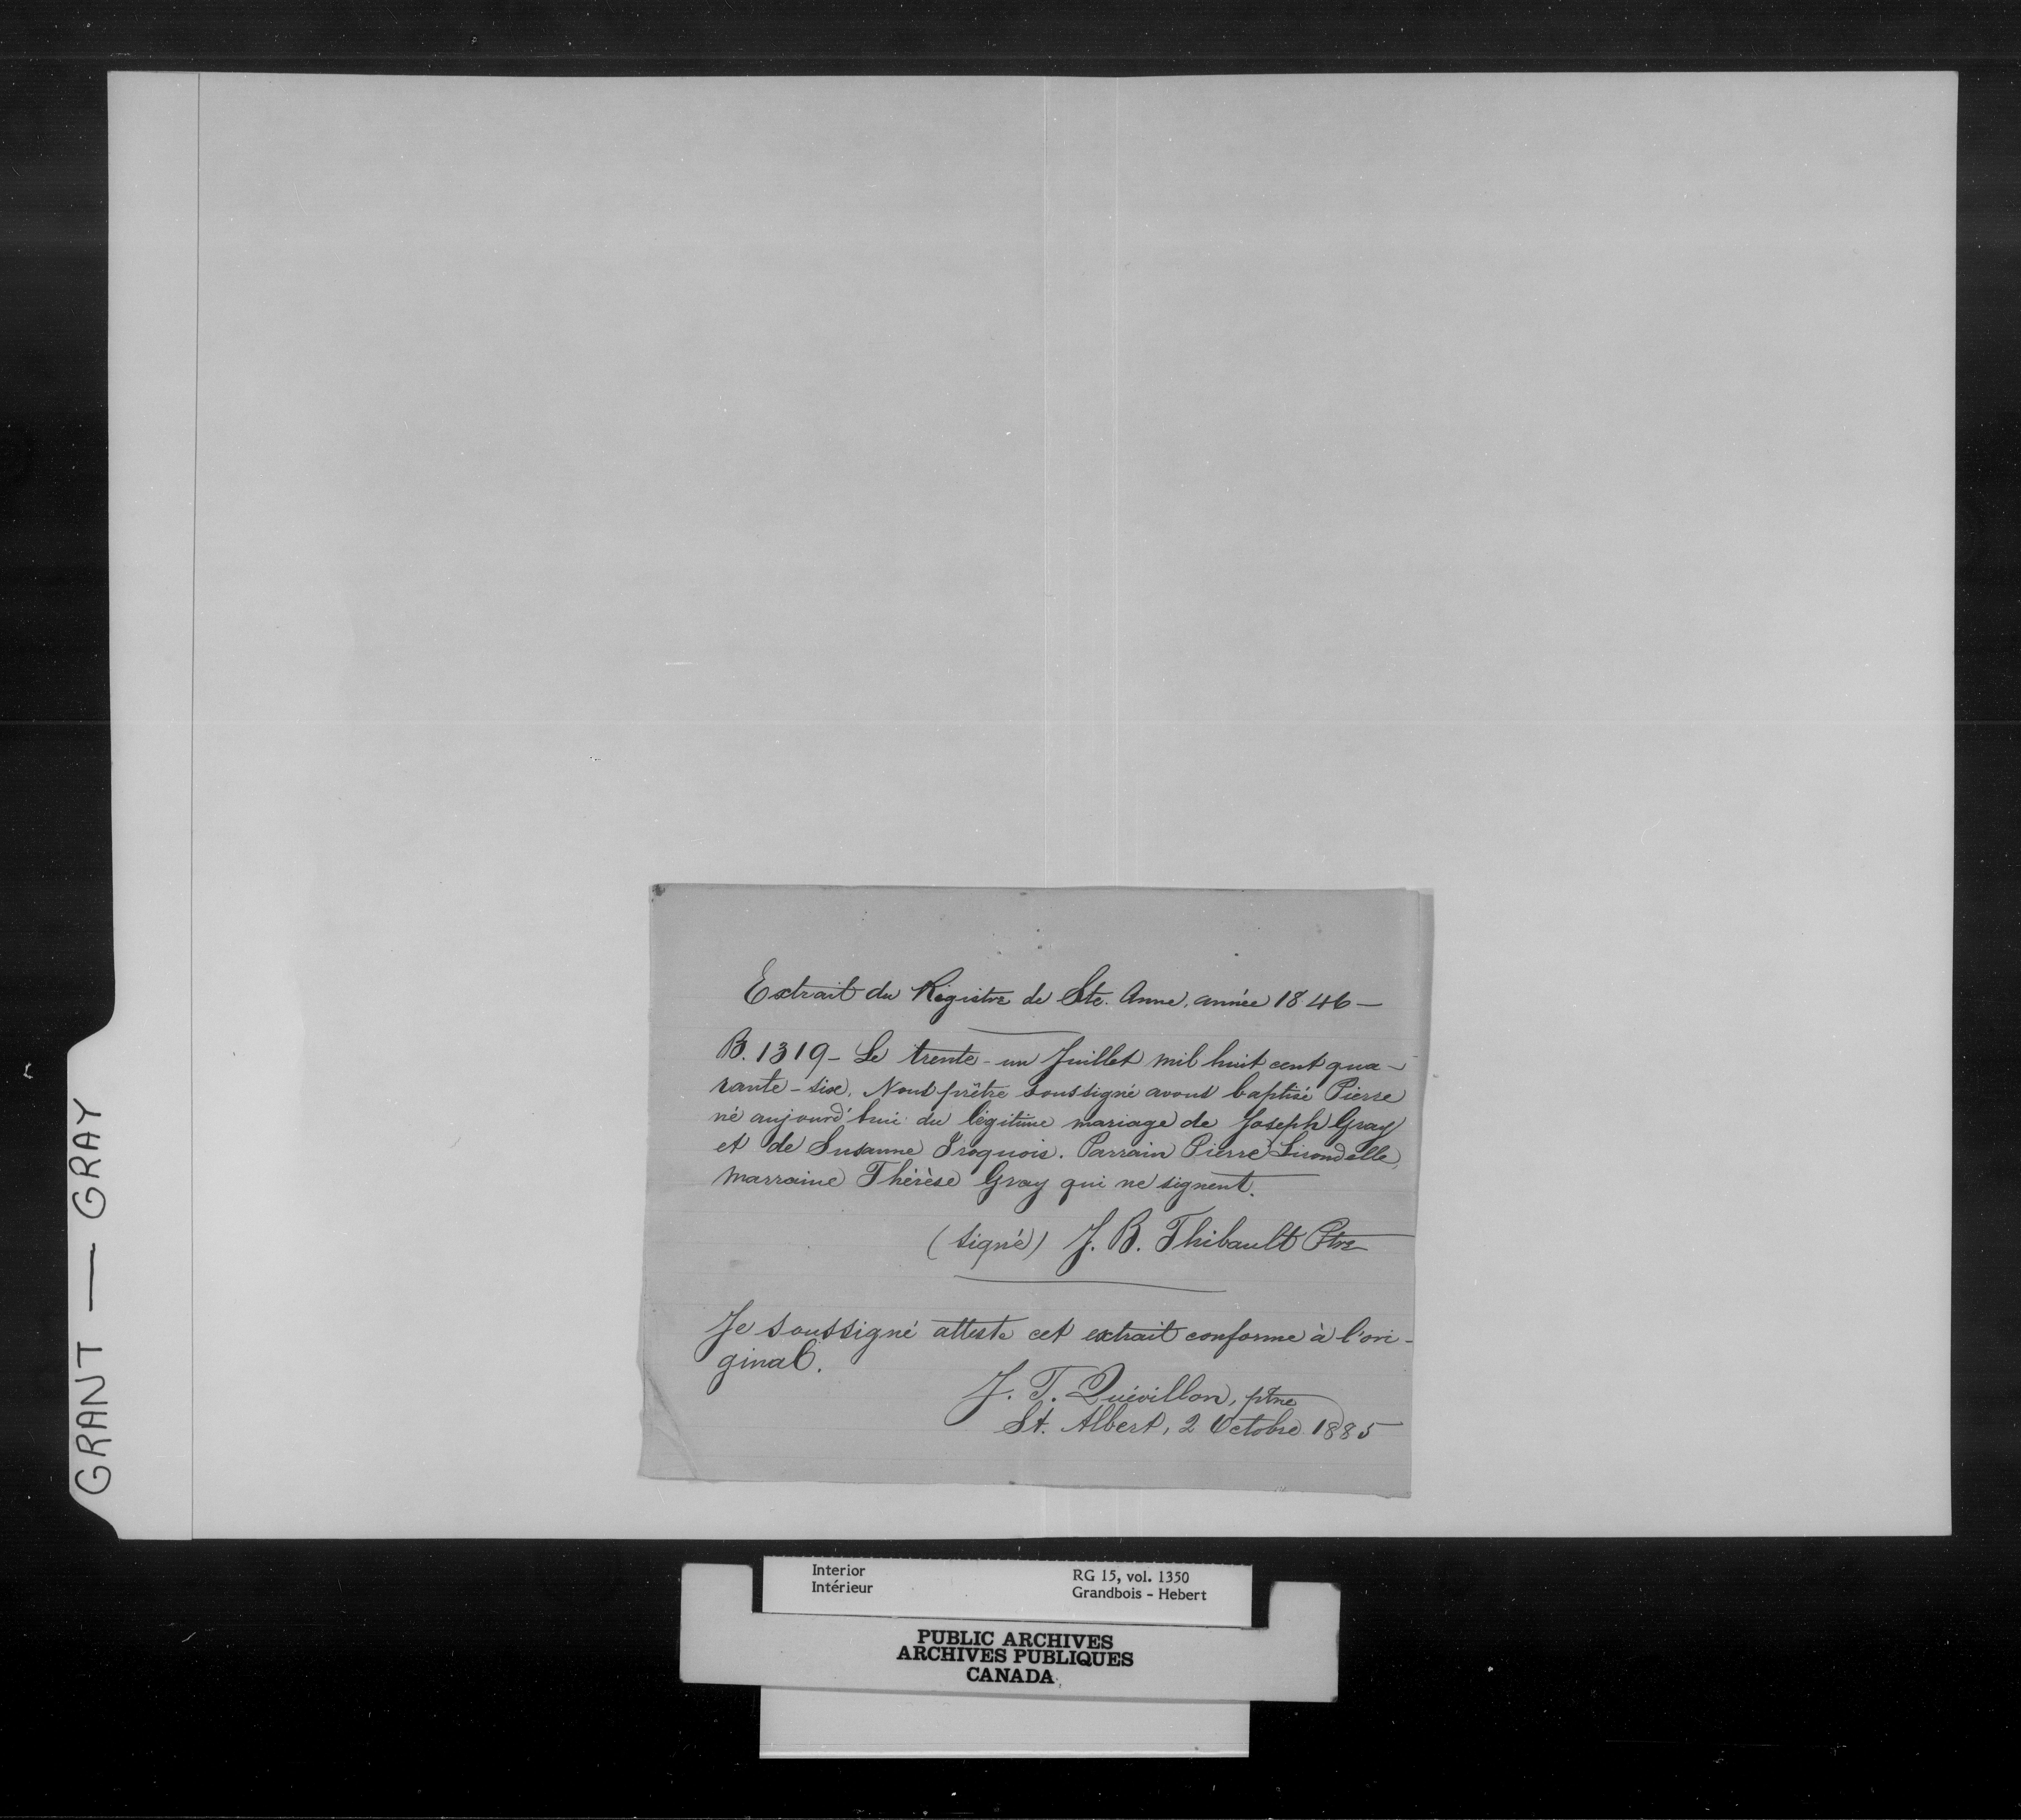 GRANT — GRAY
Extrait du Régistre de Ste. Anne, année 1846 —
B. 1319 - Le trente - un Juillet mil huit cent qua -
rante - six, Nous prêtre soussigné avons baptisé Pierre
né aujourd'hui du légitime mariage de Joseph Gray
et de Susanne Iroquois. Parrain Pierre Lirondelle,
Marraine Thérèse Gray qui ne signent.
(signé) J. B. Thibault Ptre
Je soussigné atteste cet extrait conforme à l'ori -
ginal.
J. T. Quévillon, ptre
St. Albert, 2 Octobre 1885
Interior RG 15, vol. 1350
Intérieur Grandbois - Hebert
PUBLIC ARCHIVES
ARCHIVES PUBLIQUES
CANADA